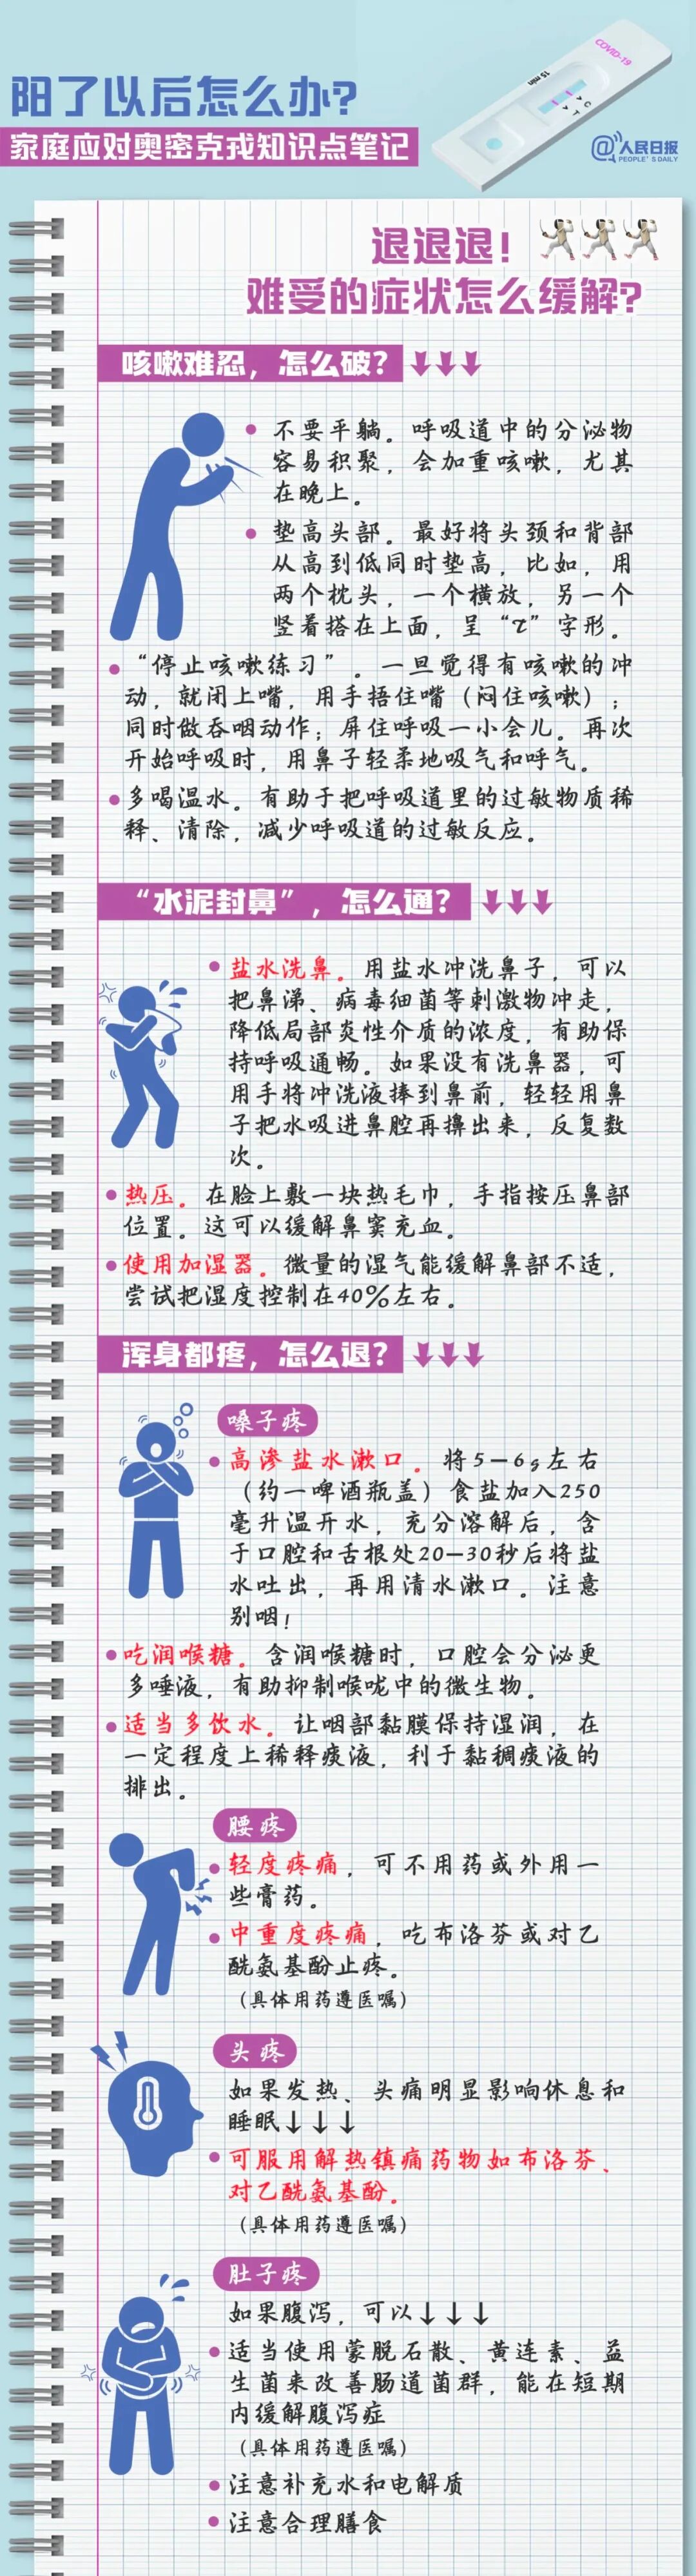 COVID-19
15 min
C
T
阳了以后怎么办?
家庭应对奥密克戎知识点笔记
@人民日报
PEOPLE'S DAILY
退退退!
难受的症状怎么缓解?
咳嗽难忍，怎么破?
不要平躺。呼吸道中的分泌物
容易积聚，会加重咳嗽，尤其
在晚上。
垫高头部。最好将头颈和背部
从高到低同时垫高，比如，用
两个枕头，一个横放，另一个
竖着搭在上面，呈“t”字形。
“停止咳嗽练习”。一旦觉得有咳嗽的冲
动，就闭上嘴，用手捂住嘴（闷住咳嗽）；
同时做吞咽动作；屏住呼吸一小会儿。再次
开始呼吸时，用鼻子轻柔地吸气和呼气。
多喝温水。有助于把呼吸道里的过敏物质稀
释、清除，减少呼吸道的过敏反应。
“水泥封鼻”，怎么通?
盐水洗鼻。用盐水冲洗鼻子，可以
把鼻涕、病毒细菌等刺激物冲走，
降低局部炎性介质的浓度，有助保
持呼吸通畅。如果没有洗鼻器，可
用手将冲洗液捧到鼻前，轻轻用鼻
子把水吸进鼻腔再擤出来，反复数
次。
热压。在脸上敷一块热毛巾，手指按压鼻部
位置。这可以缓解鼻窦充血。
使用加湿器。微量的湿气能缓解鼻部不适，
尝试把湿度控制在40%左右。
浑身都疼，怎么退?
嗓子疼
高渗盐水漱口。将5—6g左右
（约一啤酒瓶盖）食盐加入250
毫升温开水，充分溶解后，含
于口腔和舌根处20—30秒后将盐
水吐出，再用清水漱口。注意
别咽!
吃润喉糖。含润喉糖时，口腔会分泌更
多唾液，有助抑制喉咙中的微生物。
适当多饮水。让咽部黏膜保持湿润，在
一定程度上稀释痰液，利于黏稠痰液的
排出。
腰疼
轻度疼痛，可不用药或外用一
些膏药。
中重度疼痛，吃布洛芬或对乙
酰氨基酚止疼。
（具体用药遵医嘱）
头疼
如果发热、头痛明显影响休息和
睡眠↓↓↓
可服用解热镇痛药物如布洛芬、
对乙酰氨基酚。
（具体用药遵医嘱）
肚子疼
如果腹泻，可以↓↓↓
适当使用蒙脱石散、黄连素、益
生菌来改善肠道菌群，能在短期
内缓解腹泻症
（具体用药遵医嘱）
注意补充水和电解质
注意合理膳食